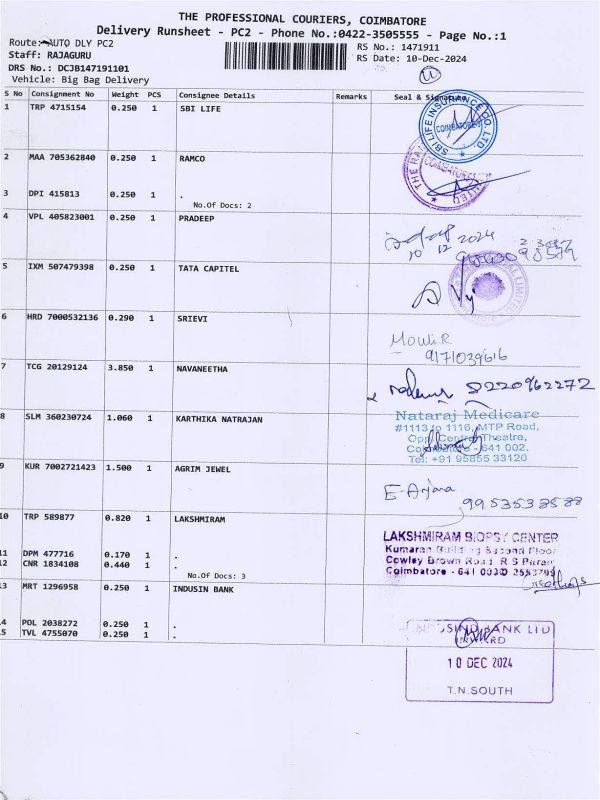 THE PROFESSIONAL COURIERS, COIMBATORE
Delivery Runsheet - PC2 - Phone No.:0422-3505555 - Page No.:1
Route: AUTO DLY PC2
RS No.: 1471911
Staff: RAJAGURU
RS Date: 10-Dec-2024
DRS No.: DCJB147191101
Vehicle: Big Bag Delivery
S No Consignment No Weight PCS Consignee Details Remarks Seal & Signature
1 TRP 4715154 0.250 1 SBI LIFE
SBI LIFE INSURANCE CO. LTD
COIMBATORE
2 MAA 705362840 0.250 1 RAMCO
3 DPI 415813 0.250 1 .
No.Of Docs: 2
4 VPL 405823001 0.250 1 PRADEEP
10 12 2024
5 IXM 507479398 0.250 1 TATA CAPITEL
6 HRD 7000532136 0.290 1 SRIEVI
Mouli R
9171039616
7 TCG 20129124 3.850 1 NAVANEETHA
8220962272
8 SLM 360230724 1.060 1 KARTHIKA NATRAJAN
Nataraj Medicare
#1113 to 1116, MTP Road,
Opp. Central Theatre,
Coimbatore - 641 002.
Tel: +91 95855 33120
9 KUR 7002721423 1.500 1 AGRIM JEWEL
E-Anjana
9953538588
10 TRP 589877 0.820 1 LAKSHMIRAM
LAKSHMIRAM BIOPSY CENTER
Kumaran Building Second Floor
Cowley Brown Road R S Puram
Coimbatore - 641 002
11 DPM 477716 0.170 1 .
12 CNR 1834108 0.440 1 .
No.Of Docs: 3
13 MRT 1296958 0.250 1 INDUSIN BANK
14 POL 2038272 0.250 1 .
15 TVL 4755070 0.250 1 .
INDUSIND BANK LTD
INWARD
10 DEC 2024
T.N.SOUTH